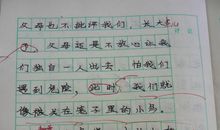 父母也不批评我们，长大点儿
了，父母还是不放心让我
们独自一人出去，怕我们
遇到危险，此时，我们就
像被关在笼子里的小鸟。